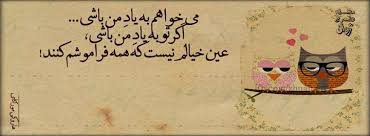 می خواهم به یاد من باشی...
اگر تو به یاد من باشی،
عین خیالم نیست که همه فراموشم کنند!